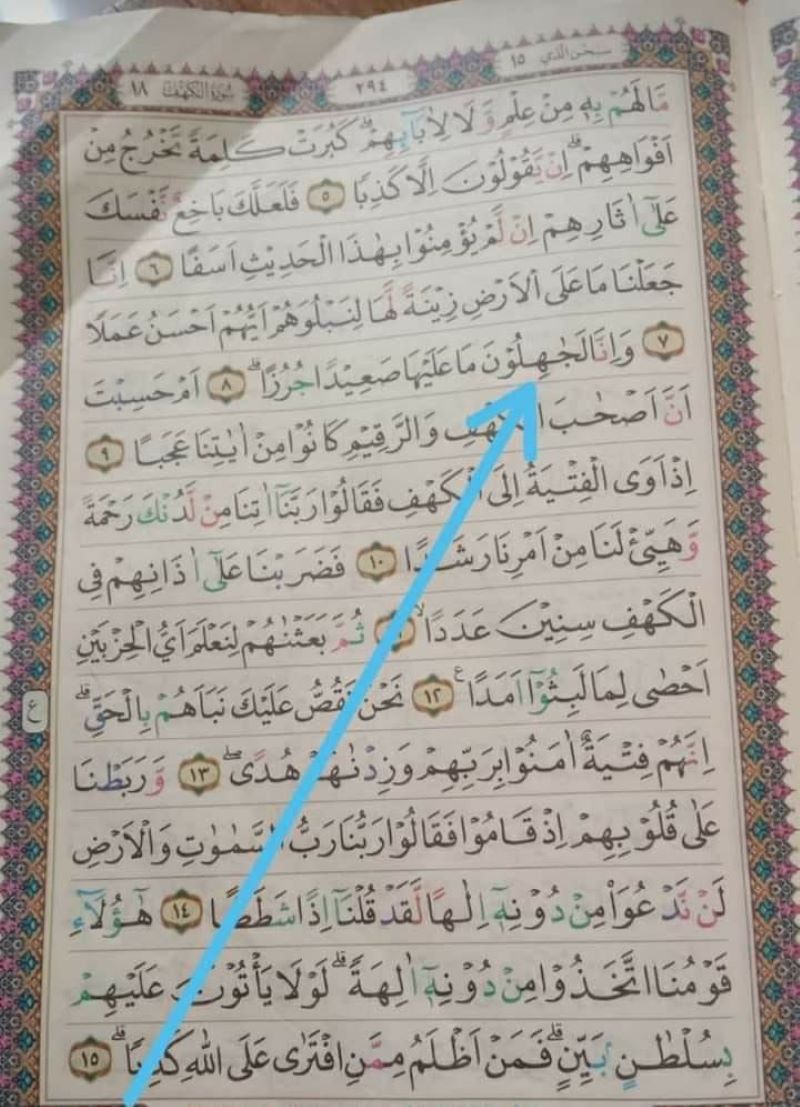 سبحن الذي ١٥ ٢٩٤ سُوْرَةُ الكَهْف ١٨
مَّا لَهُمْ بِهٖ مِنْ عِلْمٍ وَّلَا لِاٰبَاۤىِٕهِمْۗ كَبُرَتْ كَلِمَةً تَخْرُجُ مِنْ
اَفْوَاهِهِمْۗ اِنْ يَّقُوْلُوْنَ اِلَّا كَذِبًا ٥ فَلَعَلَّكَ بَاخِعٌ نَّفْسَكَ
عَلٰٓى اٰثَارِهِمْ اِنْ لَّمْ يُؤْمِنُوْا بِهٰذَا الْحَدِيْثِ اَسَفًا ٦ اِنَّا
جَعَلْنَا مَا عَلَى الْاَرْضِ زِيْنَةً لَّهَا لِنَبْلُوَهُمْ اَيُّهُمْ اَحْسَنُ عَمَلًا
٧ وَاِنَّا لَجٰهِلُوْنَ مَا عَلَيْهَا صَعِيْدًا جُرُزًاۗ ٨ اَمْ حَسِبْتَ
اَنَّ اَصْحٰبَ الْكَهْفِ وَالرَّقِيْمِ كَانُوْا مِنْ اٰيٰتِنَا عَجَبًا ٩
اِذْ اَوَى الْفِتْيَةُ اِلَى الْكَهْفِ فَقَالُوْا رَبَّنَآ اٰتِنَا مِنْ لَّدُنْكَ رَحْمَةً
وَّهَيِّئْ لَنَا مِنْ اَمْرِنَا رَشَدًا ١٠ فَضَرَبْنَا عَلٰٓى اٰذَانِهِمْ فِى
الْكَهْفِ سِنِيْنَ عَدَدًاۙ ثُمَّ بَعَثْنٰهُمْ لِنَعْلَمَ اَيُّ الْحِزْبَيْنِ
اَحْصٰى لِمَا لَبِثُوْٓا اَمَدًاࣖ ١٢ نَحْنُ نَقُصُّ عَلَيْكَ نَبَاَهُمْ بِالْحَقِّۗ
ع
اِنَّهُمْ فِتْيَةٌ اٰمَنُوْا بِرَبِّهِمْ وَزِدْنٰهُمْ هُدًىۖ ١٣ وَّرَبَطْنَا
عَلٰى قُلُوْبِهِمْ اِذْ قَامُوْا فَقَالُوْا رَبُّنَا رَبُّ السَّمٰوٰتِ وَالْاَرْضِ
لَنْ نَّدْعُوَا۟ مِنْ دُوْنِهٖٓ اِلٰهًا لَّقَدْ قُلْنَآ اِذًا شَطَطًا ١٤ هٰٓؤُلَاۤءِ
قَوْمُنَا اتَّخَذُوْا مِنْ دُوْنِهٖٓ اٰلِهَةًۗ لَوْلَا يَأْتُوْنَ عَلَيْهِمْ
بِسُلْطٰنٍۢ بَيِّنٍۗ فَمَنْ اَظْلَمُ مِمَّنِ افْتَرٰى عَلَى اللّٰهِ كَذِبًاۗ ١٥